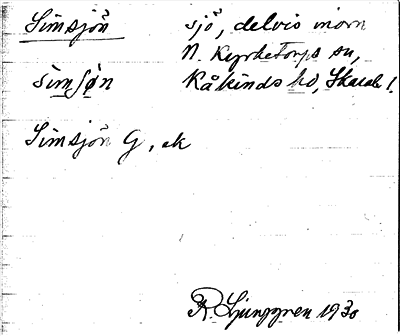 Simsjön sjö, delvis inom
N. Kyrketorps sn,
sìmʃø̀n Kåkinds hd, Skarab. l.
Simsjön G, ek
R. Ljunggren 1930